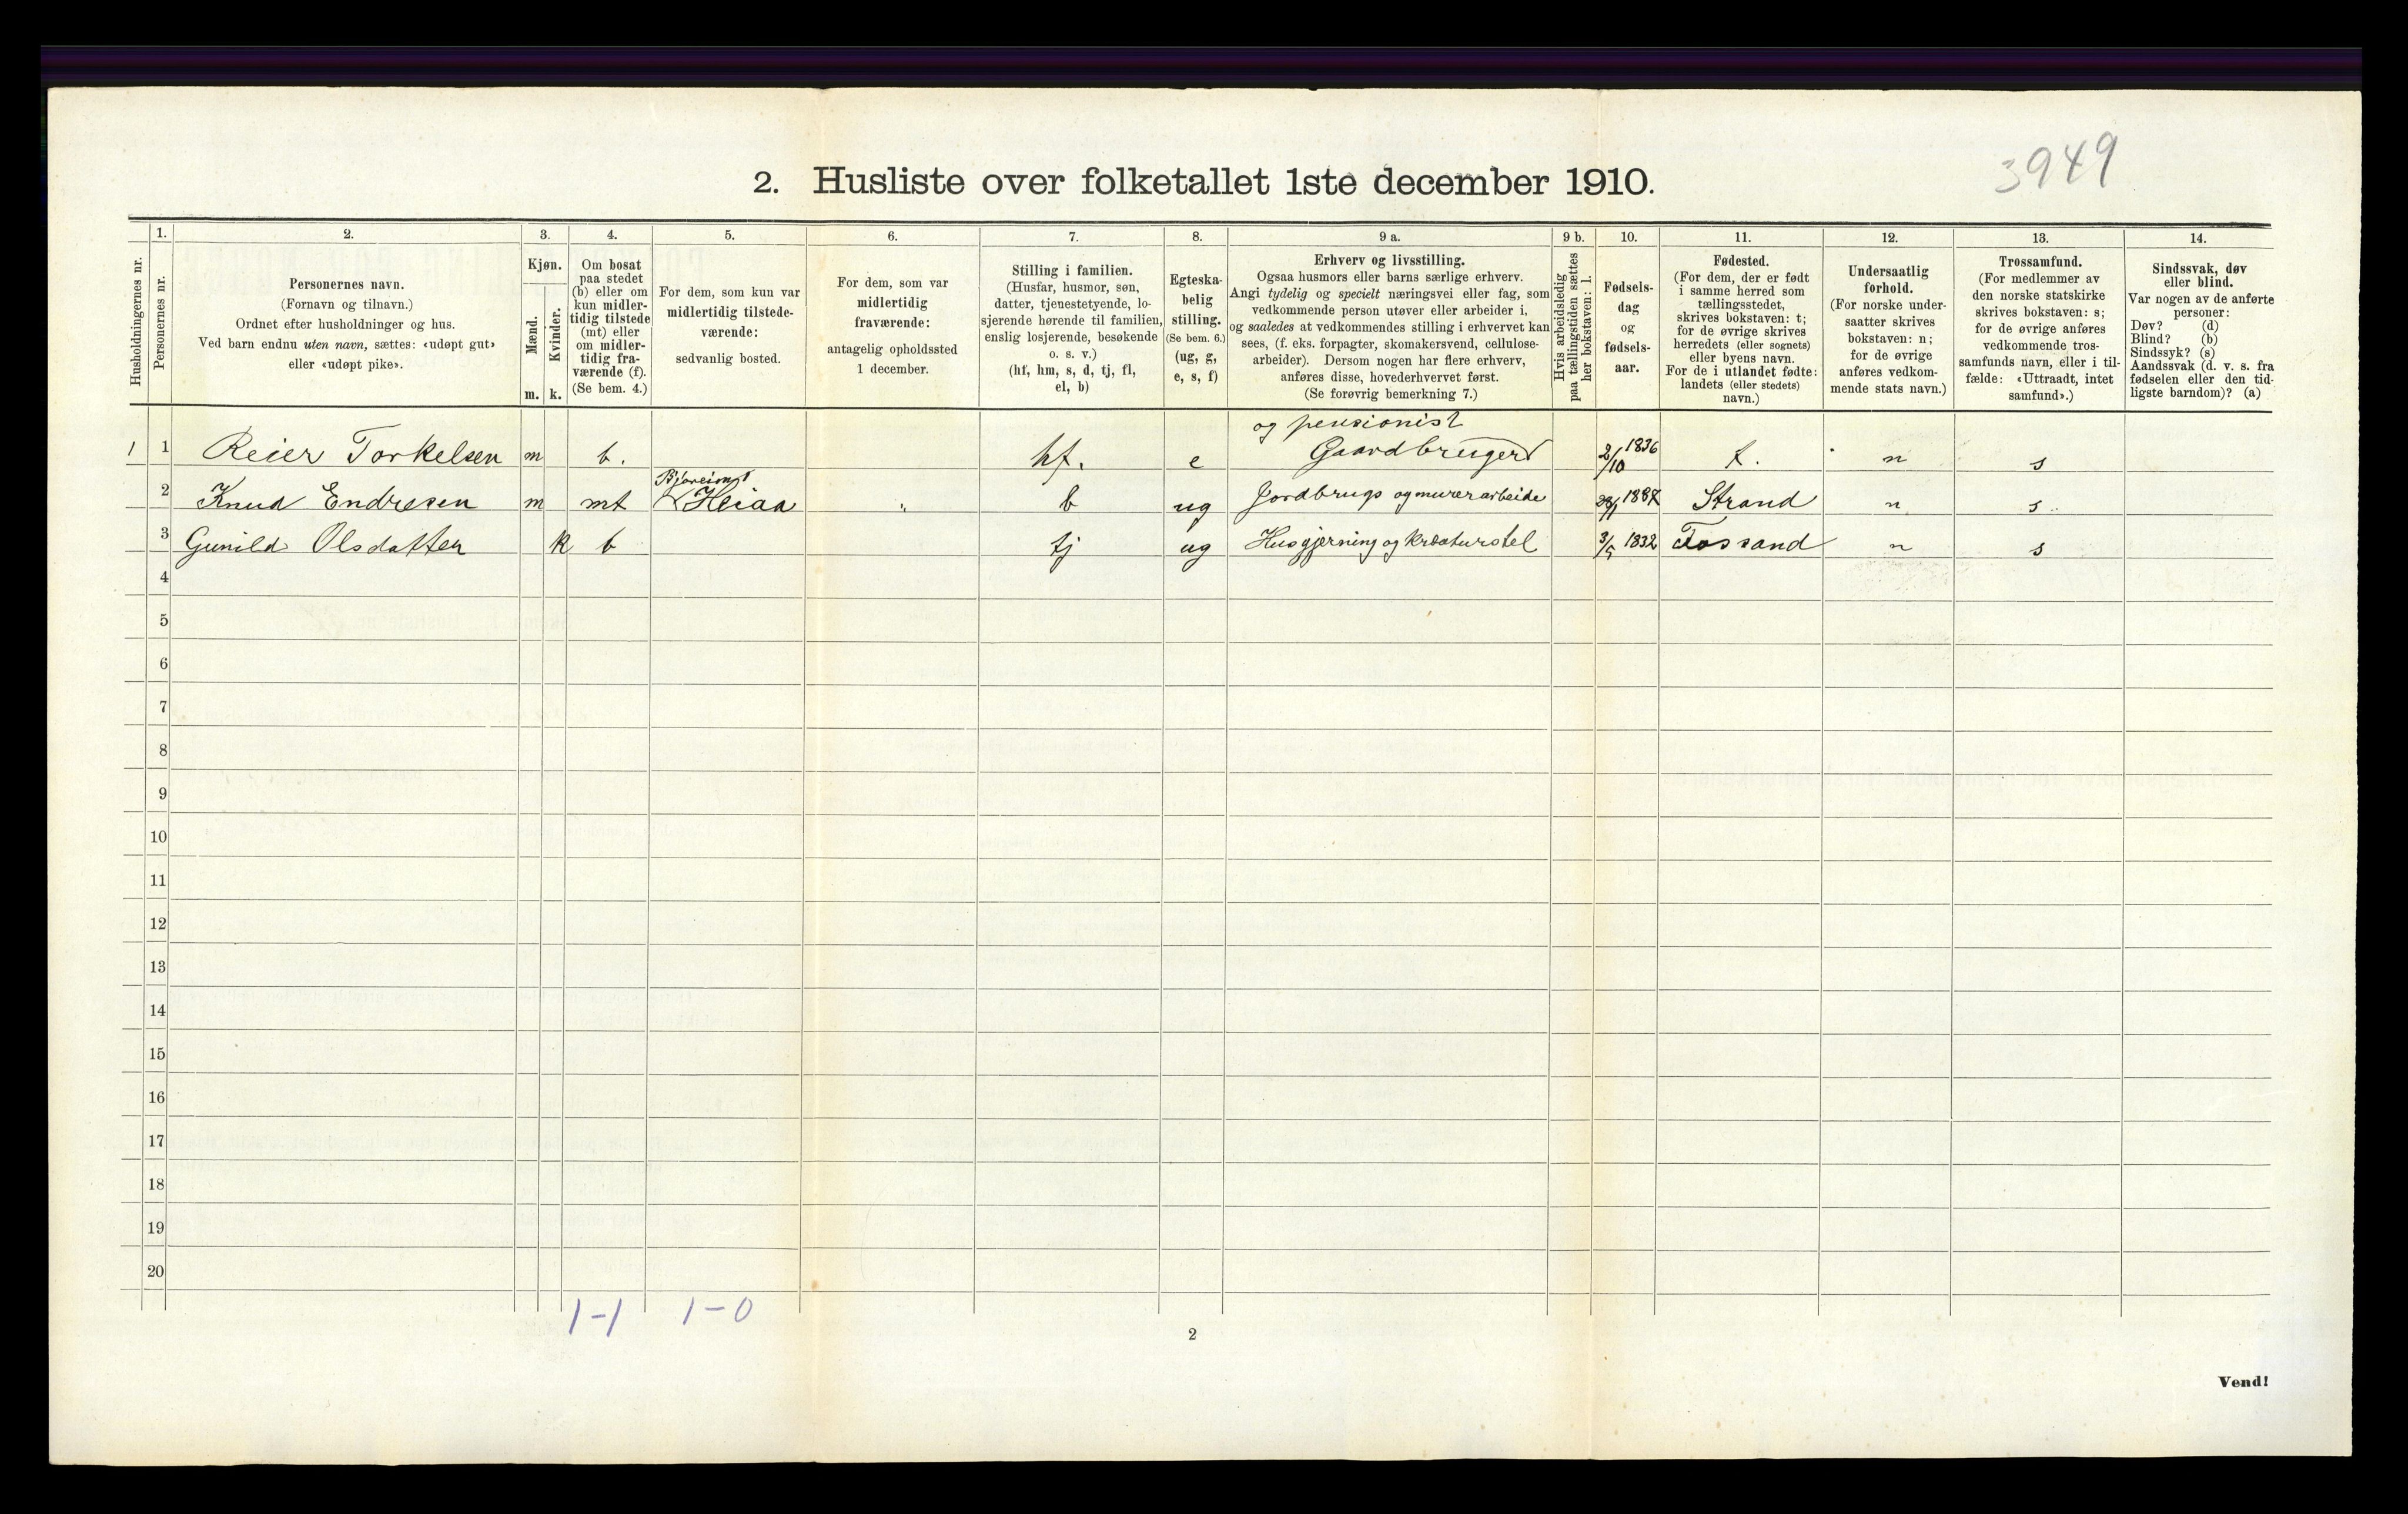 3949
2. Husliste over folketallet 1ste december 1910.
1. 2. 3. 4. 5. 6. 7. 8. 9 a. 9 b. 10. 11. 12. 13. 14.
Husholdningernes nr.
Personernes nr.
Personernes navn.
(Fornavn og tilnavn.)
Ordnet efter husholdninger og hus.
Ved barn endnu uten navn, sættes: «udøpt gut»
eller «udøpt pike».
Kjøn.
Mænd.
Kvinder.
m. k.
Om bosat
paa stedet
(b) eller om
kun midler-
tidig tilstede
(mt) eller
om midler-
tidig fra-
værende (f).
(Se bem. 4.)
For dem, som kun var
midlertidig tilstede-
værende:
sedvanlig bosted.
For dem, som var
midlertidig
fraværende:
antagelig opholdssted
1 december.
Stilling i familien.
(Husfar, husmor, søn,
datter, tjenestetyende, lo-
sjerende hørende til familien,
enslig losjerende, besøkende
o. s. v.)
(hf, hm, s, d, tj, fl,
el, b)
Egteska-
belig
stilling.
(Se bem. 6.)
(ug, g,
e, s, f)
Erhverv og livsstilling.
Ogsaa husmors eller barns særlige erhverv.
Angi tydelig og specielt næringsvei eller fag, som
vedkommende person utøver eller arbeider i,
og saaledes at vedkommendes stilling i erhvervet kan
sees, (f. eks. forpagter, skomakersvend, cellulose-
arbeider). Dersom nogen har flere erhverv,
anføres disse, hovederhvervet først.
(Se forøvrig bemerkning 7.)
Hvis arbeidsledig
paa tællingstiden sættes
her bokstaven: l.
Fødsels-
dag
og
fødsels-
aar.
Fødested.
(For dem, der er født
i samme herred som
tællingsstedet,
skrives bokstaven: t;
for de øvrige skrives
herredets (eller sognets)
eller byens navn.
For de i utlandet fødte:
landets (eller stedets)
navn.)
Undersaatlig
forhold.
(For norske under-
saatter skrives
bokstaven: n;
for de øvrige
anføres vedkom-
mende stats navn.)
Trossamfund.
(For medlemmer av
den norske statskirke
skrives bokstaven: s;
for de øvrige anføres
vedkommende tros-
samfunds navn, eller i til-
fælde: «Uttraadt, intet
samfund».)
Sindssvak, døv
eller blind.
Var nogen av de anførte
personer:
Døv? (d)
Blind? (b)
Sindssyk? (s)
Aandssvak (d. v. s. fra
fødselen eller den tid-
ligste barndom)? (a)
og pensionist
1 1 Reier Torkelsen m b. hf. e Gaardbruger 2/10 1836 t. n s
2 Knud Endresen m mt Heiaa " b ug Jordbrugs og murerarbeide Strand n s
3 Gunild Olsdatter k b tj ug Husgjerning og kreaturstel 3/5 1832 Fossand n s
4
5
6
7
8
9
10
11
12
13
14
15
16
17
18
19
20
1-1 1-0
2
Vend!